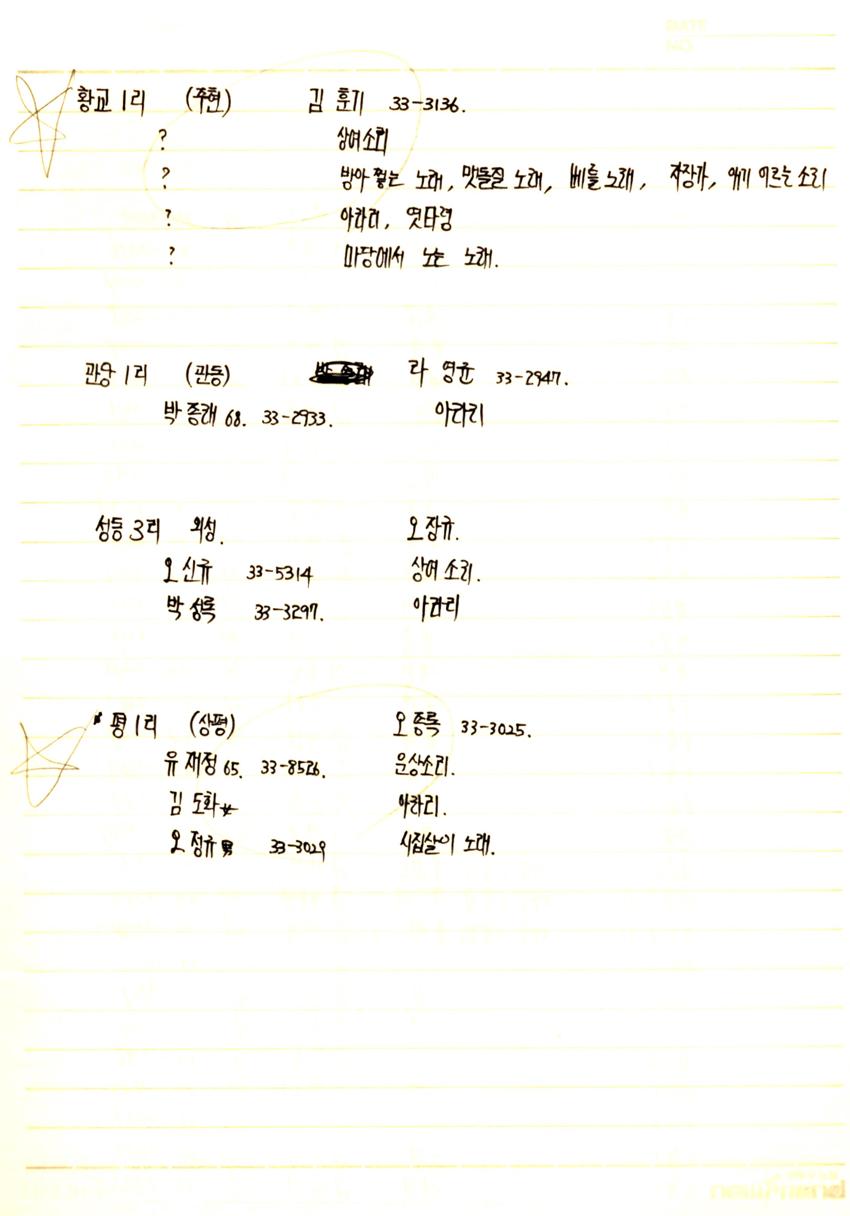 황교 1리 (주현) 김 훈기 33-3136.
? 상여소리
? 방아 찧는 노래, 맷돌질 노래, 베틀노래, 자장가, 애기 어르는 소리
? 아라리, 엿타령
? 마당에서 노는 노래.
관앙 1리 (관동) 라 영균 33-2947.
박종래 68. 33-2933. 아라리
성등 3리 외성. 오장규.
오신규 33-5314 상여 소리.
박성록 33-3297. 아라리
평 1리 (상평) 오종록 33-3025.
유재정 65. 33-8526. 운상소리.
김 도화 女 아라리.
오정규 男 33-3029 시집살이 노래.